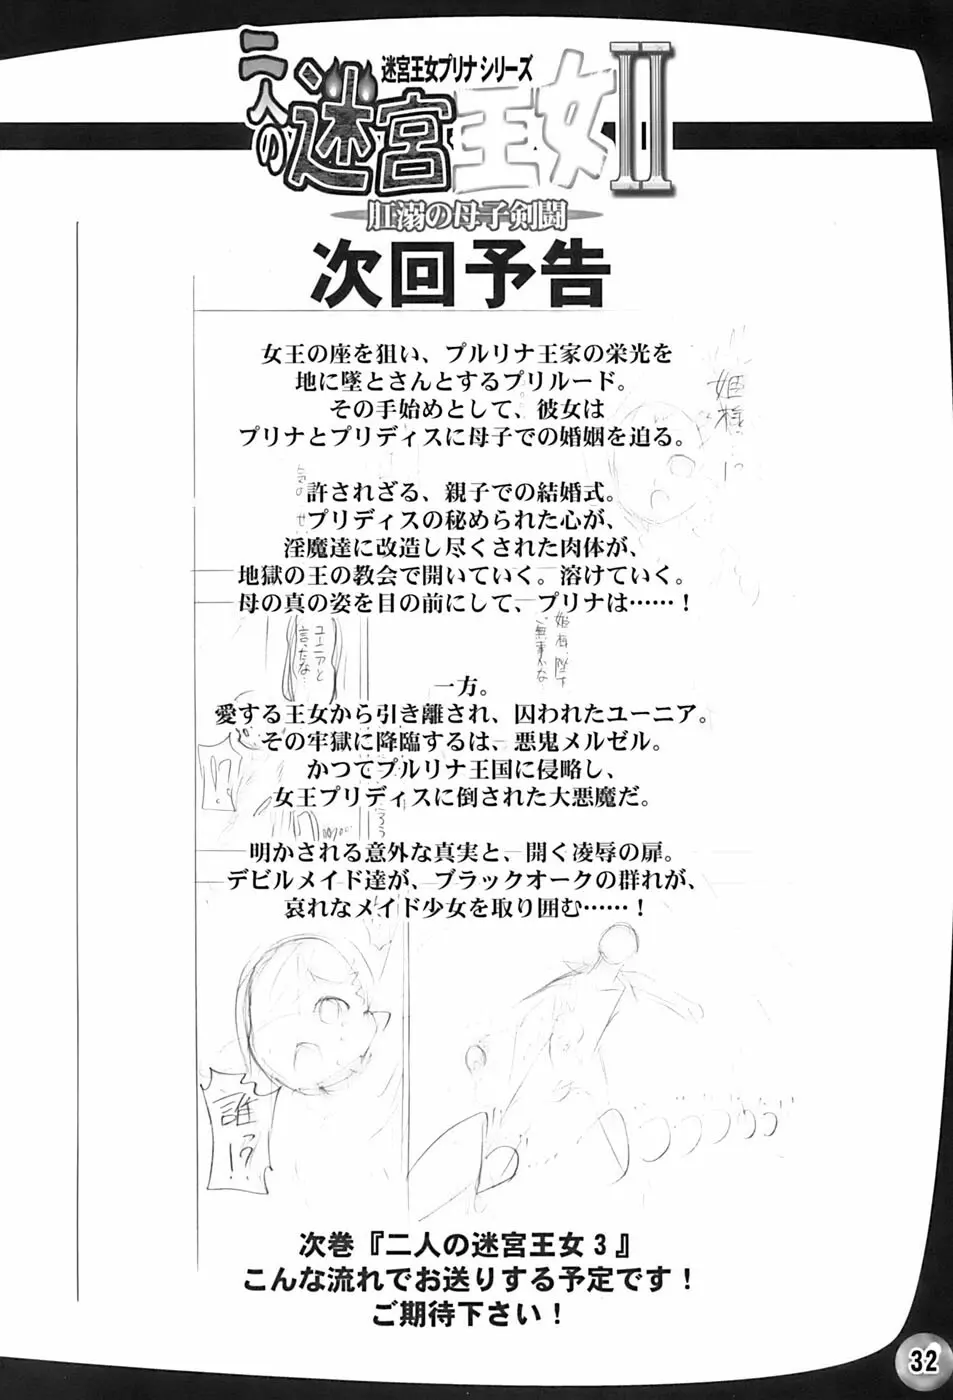 迷宮王女プリナシリーズ
二人の迷宮王女II
肛溺の母子剣闘
次回予告
女王の座を狙い、プルリナ王家の栄光を
地に墜とさんとするプリルード。
その手始めとして、彼女は
プリナとプリディスに母子での婚姻を迫る。
姫様…!?
許されざる、親子での結婚式。
プリディスの秘められた心が、
淫魔達に改造し尽くされた肉体が、
地獄の王の教会で開いていく。溶けていく。
母の真の姿を目の前にして、プリナは……！
姫様、陛下
ご無事かな…
ユーニアと
言ったな…
一方。
愛する王女から引き離され、囚われたユーニア。
その牢獄に降臨するは、悪鬼メルゼル。
かつてプルリナ王国に侵略し、
女王プリディスに倒された大悪魔だ。
!?
明かされる意外な真実と、開く凌辱の扉。
デビルメイド達が、ブラックオークの群れが、
哀れなメイド少女を取り囲む……！
誰!?
次巻『二人の迷宮王女３』
こんな流れでお送りする予定です！
ご期待下さい！
32